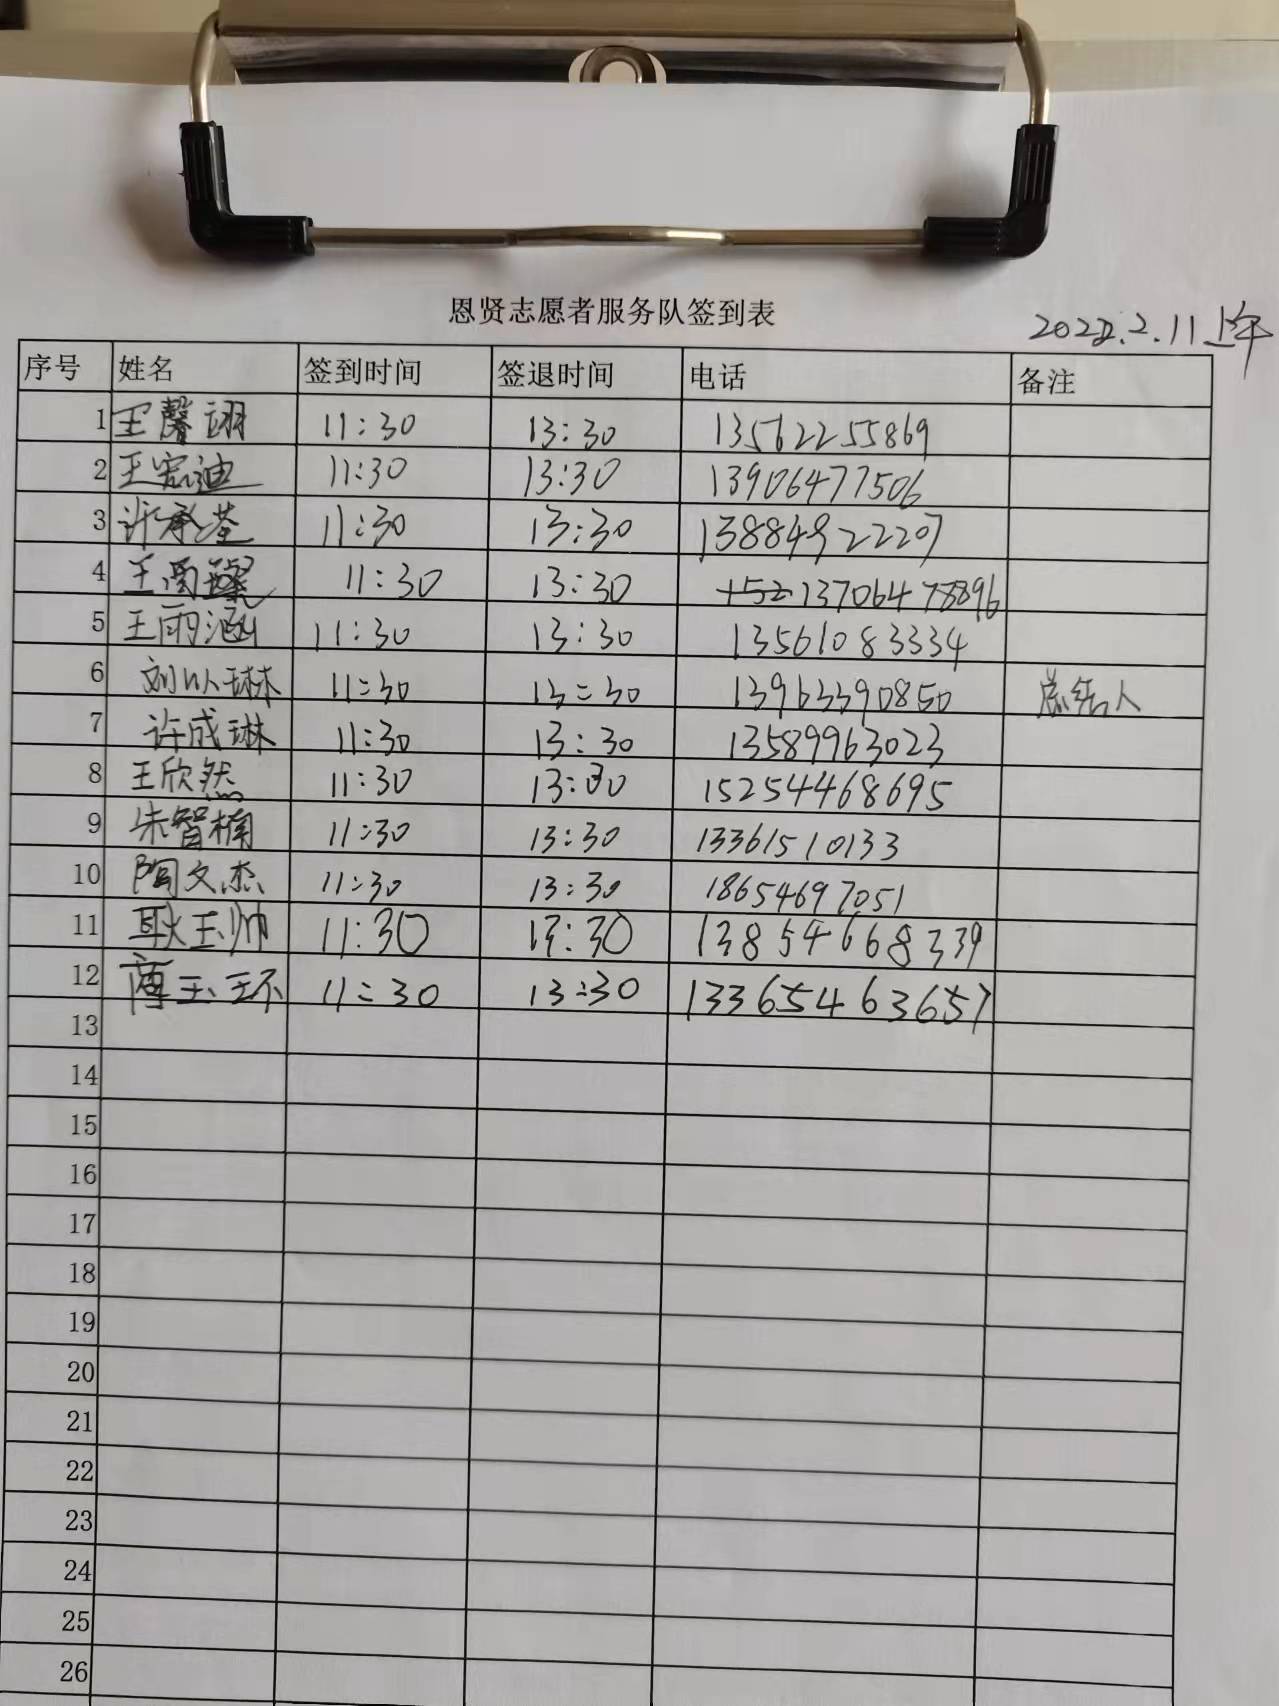 恩贤志愿者服务队签到表
2022.2.11上午
序号 姓名 签到时间 签退时间 电话 备注
1 王馨翊 11:30 13:30 13562255869
2 王宏迪 11:30 13:30 13906477506
3 许承荃 11:30 13:30 13884922207
4 王雨 11:30 13:30 13706478896
5 王雨涵 11:30 13:30 13561083334
6 刘以琳 11:30 13:30 13963390850 总结人
7 许成琳 11:30 13:30 13589963023
8 王欣然 11:30 13:30 15254468695
9 朱智楠 11:30 13:30 13361510133
10 陶文杰 11:30 13:30 18654697051
11 耿玉帅 11:30 13:30 13854668339
12 玉环 11:30 13:30 13365463657
13
14
15
16
17
18
19
20
21
22
23
24
25
26